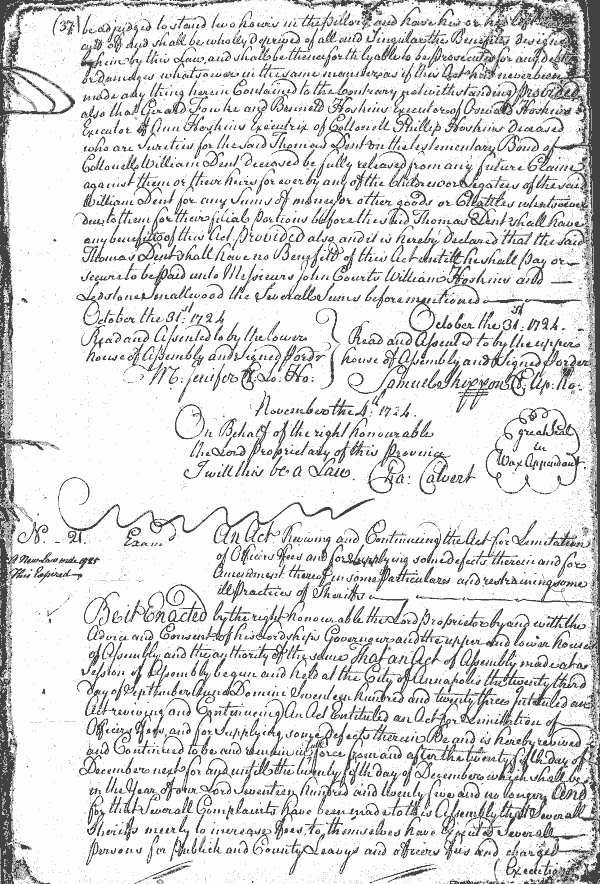 (37) be adjudged to stand two hours in the Pillory and have his or her
cutt off and shall be wholly deprived of all and Singular the Benefitts designed
herein by this Law, and shall be thenceforth lyable to be prosecuted for any debts
or damages whatsoever in the same manner as if this Act had never been
made any thing herein Contained to the Contrary notwithstanding Provided
also that Gerard Fowke and Bennett Hoskins Executor of Oswald Hoskins
Executor of Ann Hoskins Executrix of Collonell Phillip Hoskins deceased
who are Sureties for the said Thomas Dent on the Testementary Bond of
Collonell William Dent deceased be fully released from any future Claim
against them or their heirs for ever by any of the Children or Legatees of the said
William Dent for any Sums of money or other goods or Chattles whatsoever
due to them for their filial Portions before the said Thomas Dent shall have
any benefitt of this Act Provided also and it is hereby Declared that the said
Thomas Dent shall have no Benefitt of this Act untill he shall pay or
secure to be paid unto Messieurs John Courts William Hoskins and
Ledstone Smallwood the Severall Sums beforementioned
October the 31st 1724
Read and Assented to by the lower
house of Assembly and signed p ordr
M. Jenifer Cl. Lo. Ho:
October the 31st 1724.
Read and Assented to by the upper
house of Assembly and Signed p order
Samuel Skippon Cl. Up. Ho.
November the 4th 1724.
On Behalf of the right honourable
the Lord Proprietary of this Province
I will this be a Law.
Cha: Calvert
great Seal
in
Wax Appendant.
No. 21.
Examd
A New Law made 1725
This Expired
An Act Reviving and Continuing the Act for Limitation
of Officers Fees and for Supplying some defects therein and for
Amendment thereof in some Particulars and restraining some
ill Practices of Sheriffs
Be it Enacted by the right honourable the Lord Proprietor by and with the
Advice and Consent of his Lordships Governour and the upper and lower house
of Assembly and the authority of the same That an Act of Assembly made at a
Session of Assembly begun and held at the City of Annapolis the twenty third
day of September Anno Domini Seventeen hundred and twenty three Intituled an
Act reviving and Continueing An Act Entituled an Act for Limitation of
Officers Fees, and for Supplying some defects therein Be and is hereby revived
and Continued to be and remain in force from and after the twenty fifth day of
December next for and untill the twenty fifth day of December which shall be
in the Year of our Lord Seventeen hundred and twenty five and no longer And
for that Severall Complaints have been made to this Assembly that Severall
Sheriffs meerly to increase Fees to themselves have executed Severall
Persons for Publick and County Leavys and officers Fees and charged
(Execution